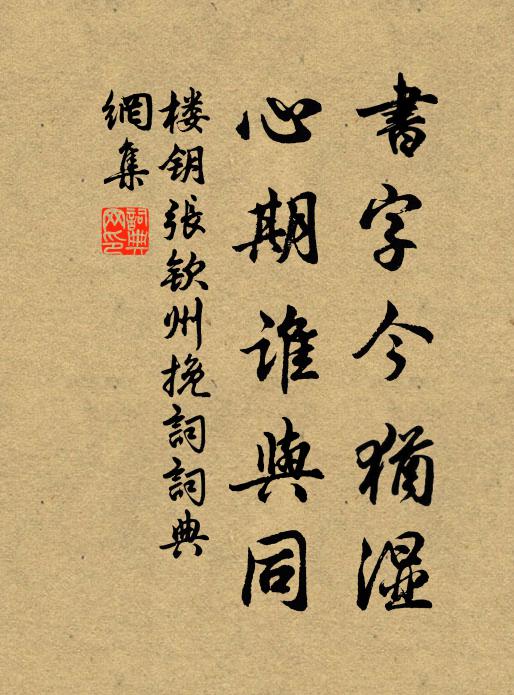 書字今猶湿
心期谁與同
楼钥張欽州挽詞詞典
網集
詞典
网印